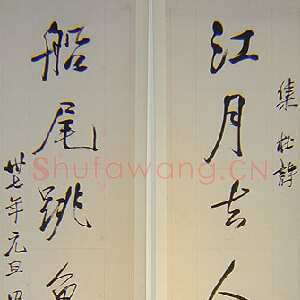 集杜詩
江月去人
船尾跳魚
卅七年元旦
Shufawang.CN